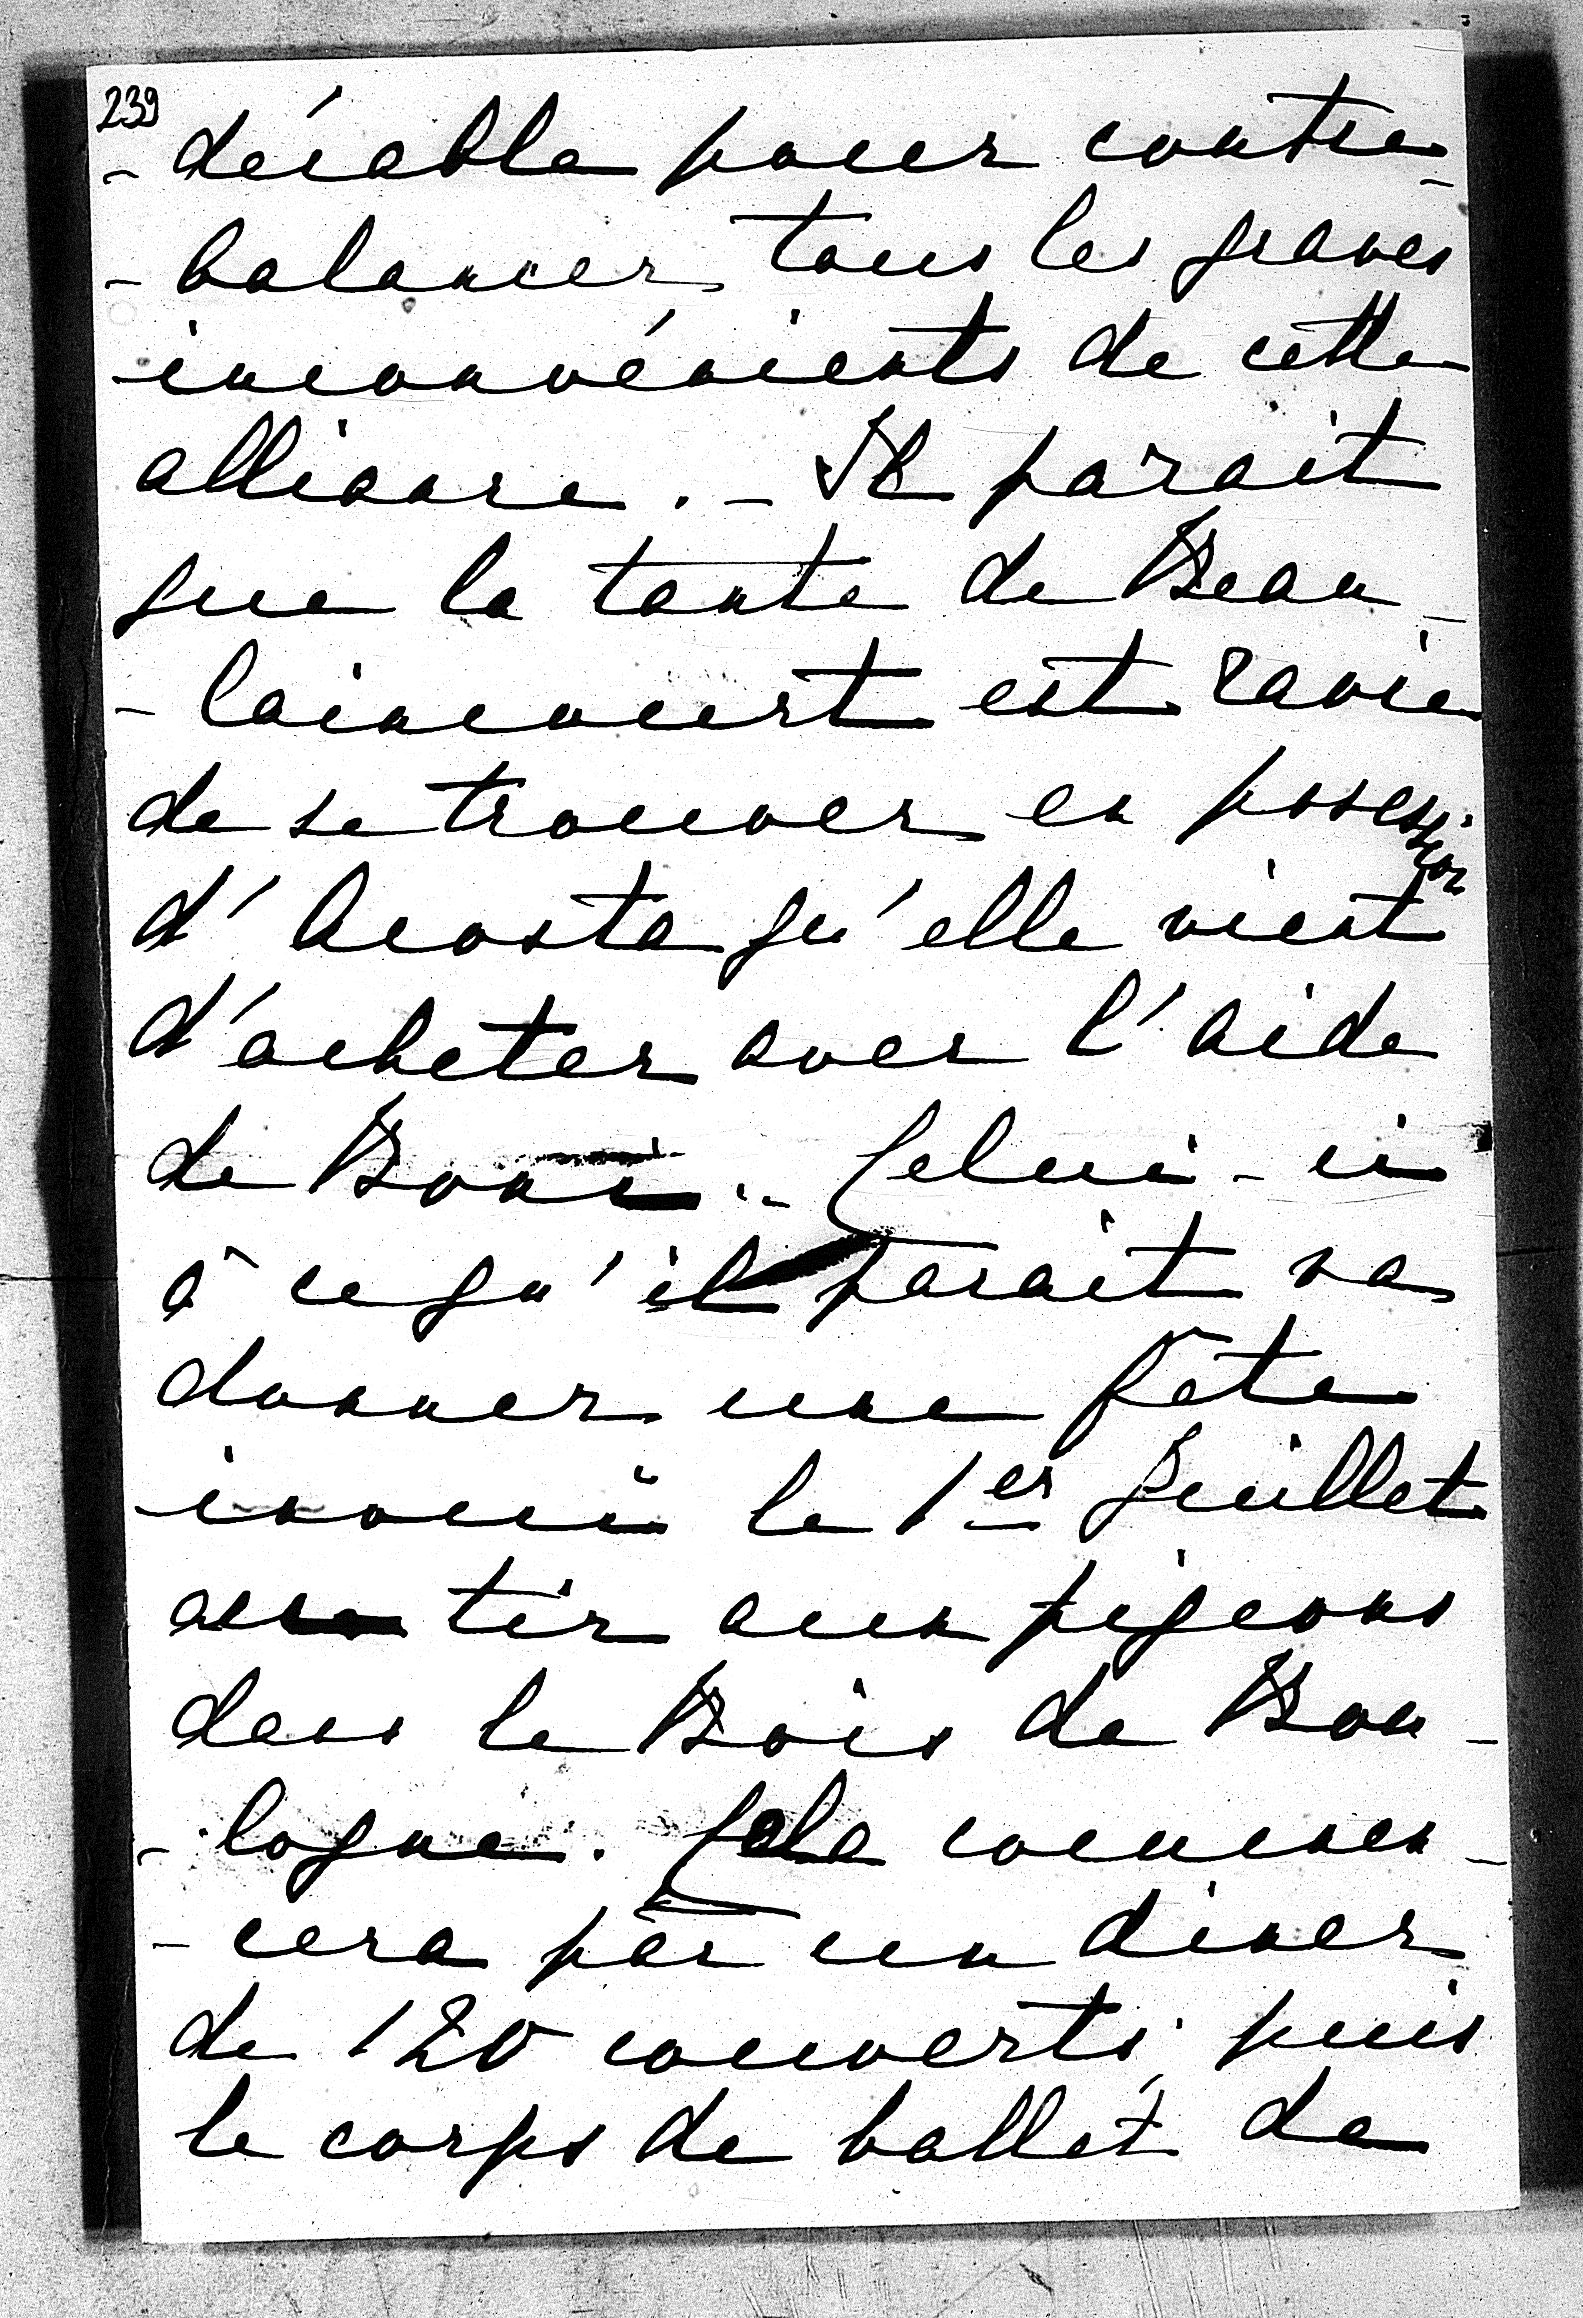 239
- dérable pour contre-
- balancer tous les graves
inconvénients de cette
alliance. - Il parait
que la tante de Beau-
- laincourt est ravie
de se trouver en possession
d'Acosta qu'elle vient
d'acheter avec l'aide
de Boni. - Celui-ci
à ce qu'il parait va
donner une fête
inouïe le 1er Juillet
au tir aux pigeons
dans le Bois de Bou-
- logne. Cela commen-
- cera par un diner
de 120 couverts, puis
le corps de ballet de